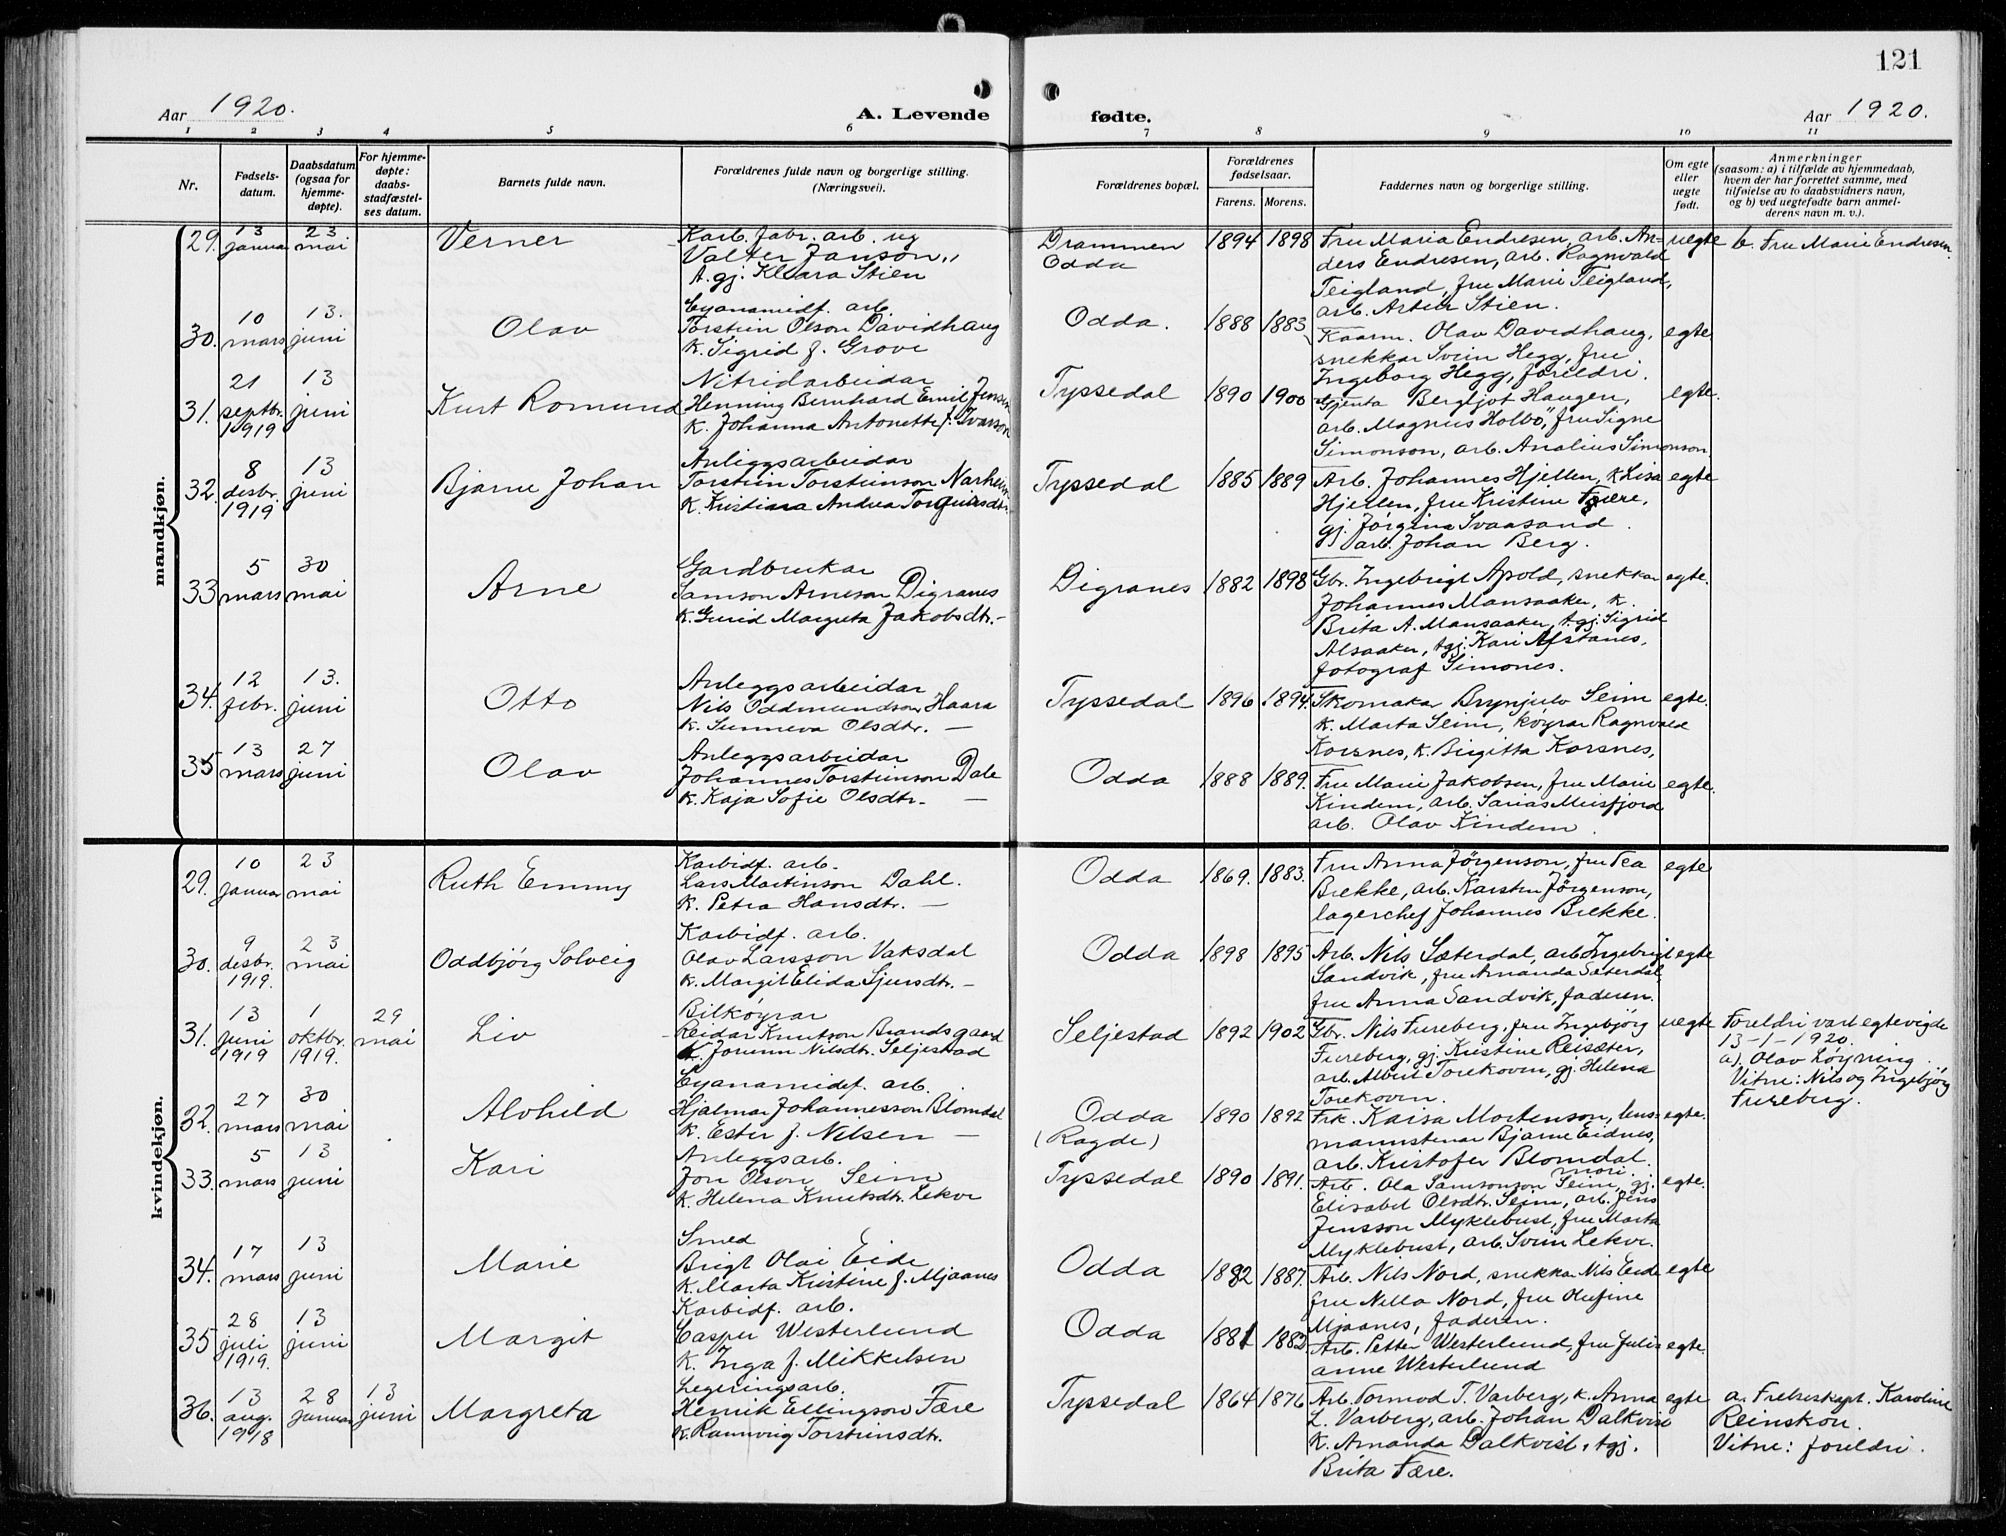 121
Aar 1920.
A. Levende
fødte.
Aar 1920.
1 2 3 4 5 6 7 8 9 10 11
Nr.
Fødsels-
datum.
Daabsdatum
(ogsaa for
hjemme-
døpte).
For hjemme-
døpte:
daabs-
stadfæstel-
ses datum.
Barnets fulde navn.
Forældrenes fulde navn og borgerlige stilling.
(Næringsvei).
Forældrenes bopæl.
Forældrenes
fødselsaar.
Farens. Morens.
Faddernes navn og borgerlige stilling.
Om egte
eller
uegte
født.
Anmerkninger
(saasom: a) i tilfælde av hjemmedaab,
hvem der har forrettet samme, med
tilføielse av to daabsvidners navn,
og b) ved uegtefødte barn anmel-
derens navn m. v.).
mandkjøn.
29. 13 januar 23 mai
Verner
Karb. fabr. arb. ug
Valter Janson,
t. gj. Klara Stien
Drammen
Odda
1894 1898
Fru Maria Endresen, arb. An-
ders Endresen, arb. Ragnvald
Teigland, fru Marie Teigland,
arb. Artur Stien.
uegte
b. Fru Marie Endresen.
30. 10 mars 13. juni
Olav
Cyanamidf. arb.
Torstein Olson Davidhaug
k. Sigrid f. Grove
Odda.
1888 1883
Kaarm. Olav Davidhaug,
snekkar Svein Hegg, fru
Ingeborg Hegg, foreldri.
egte.
31. 21 septbr. 1919 13 juni
Kurt Romund
Nitridarbeidar
Henning Bernhard Emil Jensen
k. Johanna Antonette f. Ivarson
Tyssedal
1890 1900
Gjenta Bergljot Haugen,
arb. Magnus Holbö, fru Signe
Simonson, arb. Analius Simonson.
egte.
32. 8 desbr. 1919 13 juni
Bjarne Johan
Anleggsarbeidar
Torstein Torsteinson Narheim
k. Kristiana Andrea Torgeirsdtr.
Tyssedal
1885 1889
Arb. Johannes Hjellen, k. Lisa
Hjellen, fru Kristine Fære,
gj. Jørgina Svaasand.
arb. Johan Berg.
egte
33 5 mars 30 mai
Arne
Gardbrukar
Samson Arneson Digranes
k. Gurid Margreta Jakobsdtr. —
Digranes
1882 1898
Gbr. Ingebrigt Apold, snekkar
Johannes Mansaaker, k.
Brita A. Mansaaker, t. gj. Sigrid
Alsaaker, tgj. Kari Alstanes,
fotograf Simones.
egte.
34. 12 febr. 13. juni
Otto
Anleggsarbeidar
Nils Oddmundson Haara
k. Sunneva Olsdtr. —
Tyssedal
1896 1894.
Skomakar Brynjulv Seim
k. Marta Seim, køyrar Ragnvald
Korsnes, k. Birgitta Korsnes,
egte.
35 13 mars 27 juni
Olav
Anleggsarbeidar
Johannes Torsteinson Dale
k. Kaja Sofie Olsdtr. —
Odda
1888 1889.
Fru Marie Jakobsen, fru Marie
Kindem, arb. Sarias Meisfjord
arb. Olav Kindem.
egte.
kvindekjøn.
29. 10 januar 23 mai
Ruth Emmy
Karbidf. arb.
Lars Martinson Dahl.
k. Petra Hansdtr. —
Odda
1869. 1883.
Fru Anna Jørgenson, fru Tea
Brekke, arb. Karsten Jørgenson,
lagerchef Johannes Brekke.
egte
30. 9 desbr. 1919. 23 mai
Oddbjörg Solveig
Karbidf. arb.
Olav Larsson Vaksdal
k. Margit Elida Sjursdtr. —
Odda
1898 1895
Arb. Nils Sæterdal, arb. Ingebrigt
Sandvik, fru Amanda Sæterdal,
fru Anna Sandvik, faderen.
egte
31. 13 juni 1919 1 oktbr. 1919. 29 mai
Liv
Bilkøyrar
Reidar Knutson Brandsgaard
k. Jorunn Nilsdtr. Seljestad
Seljestad
1892 1902
Gbr. Nils Fureberg, fru Ingebjörg
Fureberg, gj. Kristine Reisæter,
arb. Albert Torekoven, gj. Helena
Torekoven.
uegte
Foreldri vart egtevigde
13-1-1920.
a). Olav Löyning.
Vitne: Nils og Ingebjörg
Fureberg.
32. 27 mars 30 mai
Alvhild
Cyanamidf. arb.
Hjalmar Johannesson Blomdal
k. Ester f. Nelsen —
Odda
(Ragde)
1890 1892
Frk. Kaisa Mortenson, lens-
mannstenar Bjarne Eidnes,
arb. Kristofer Blomdal.
egte.
33. 5 mars 13 juni
Kari
Anleggsarb.
Jon Olson Seim
k. Helena Knutsdtr. Lekve
Tyssedal
1890 1891.
mori.
Arb. Ola Samsonson Seim, gj.
Elisabet Olsdtr. Seim, arb. Jens
Jensson Myklebust, fru Marta
Myklebust, arb. Svein Lekve.
egte.
34. 17 mars 13 juni
Marie
Smed
Brigt Olai Eide
k. Marta Kristine f. Mjaanes
Odda
1882 1887.
Arb. Nils Nord, snekkar Nils Eide
fru Nilla Nord, fru Olufine
Mjaanes, faderen.
egte
35 28 juli 1919. 13 juni
Margit
Karbidf. arb.
Casper Westerlund
k. Inga f. Mikkelsen
Odda
1881 1882.
Arb. Petter Westerlund, fru Juli-
anne Westerlund
egte.
36. 13 aug. 1918 28 januar 13 juni
Margreta
Legeringsarb.
Henrik Ellingson Fære
k. Rannveig Torsteinsdtr.
Tyssedal
1864 1876
Arb. Tormod T. Varberg, k. Anna
L. Varberg, arb. Johan Dalkvist
k. Amanda Dalkvist, tgj.
Brita Fære.
egte
a. Frelseskapt. Karoline
Reinskou.
Vitne: foreldri.